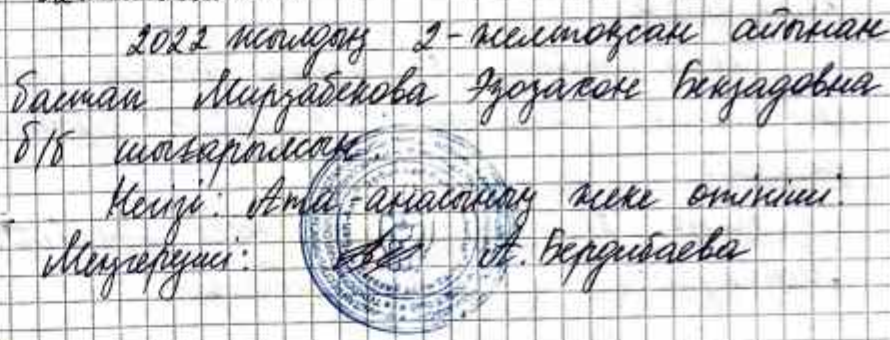 2022 жылдың 2-желтоқсан айынан
бастап Мирзабекова Эзозахон Бекзадовна
б/б шығарылсын.
Негізі: Ата-анасының жеке өтініші.
Меңгеруші: А. Бердибаева